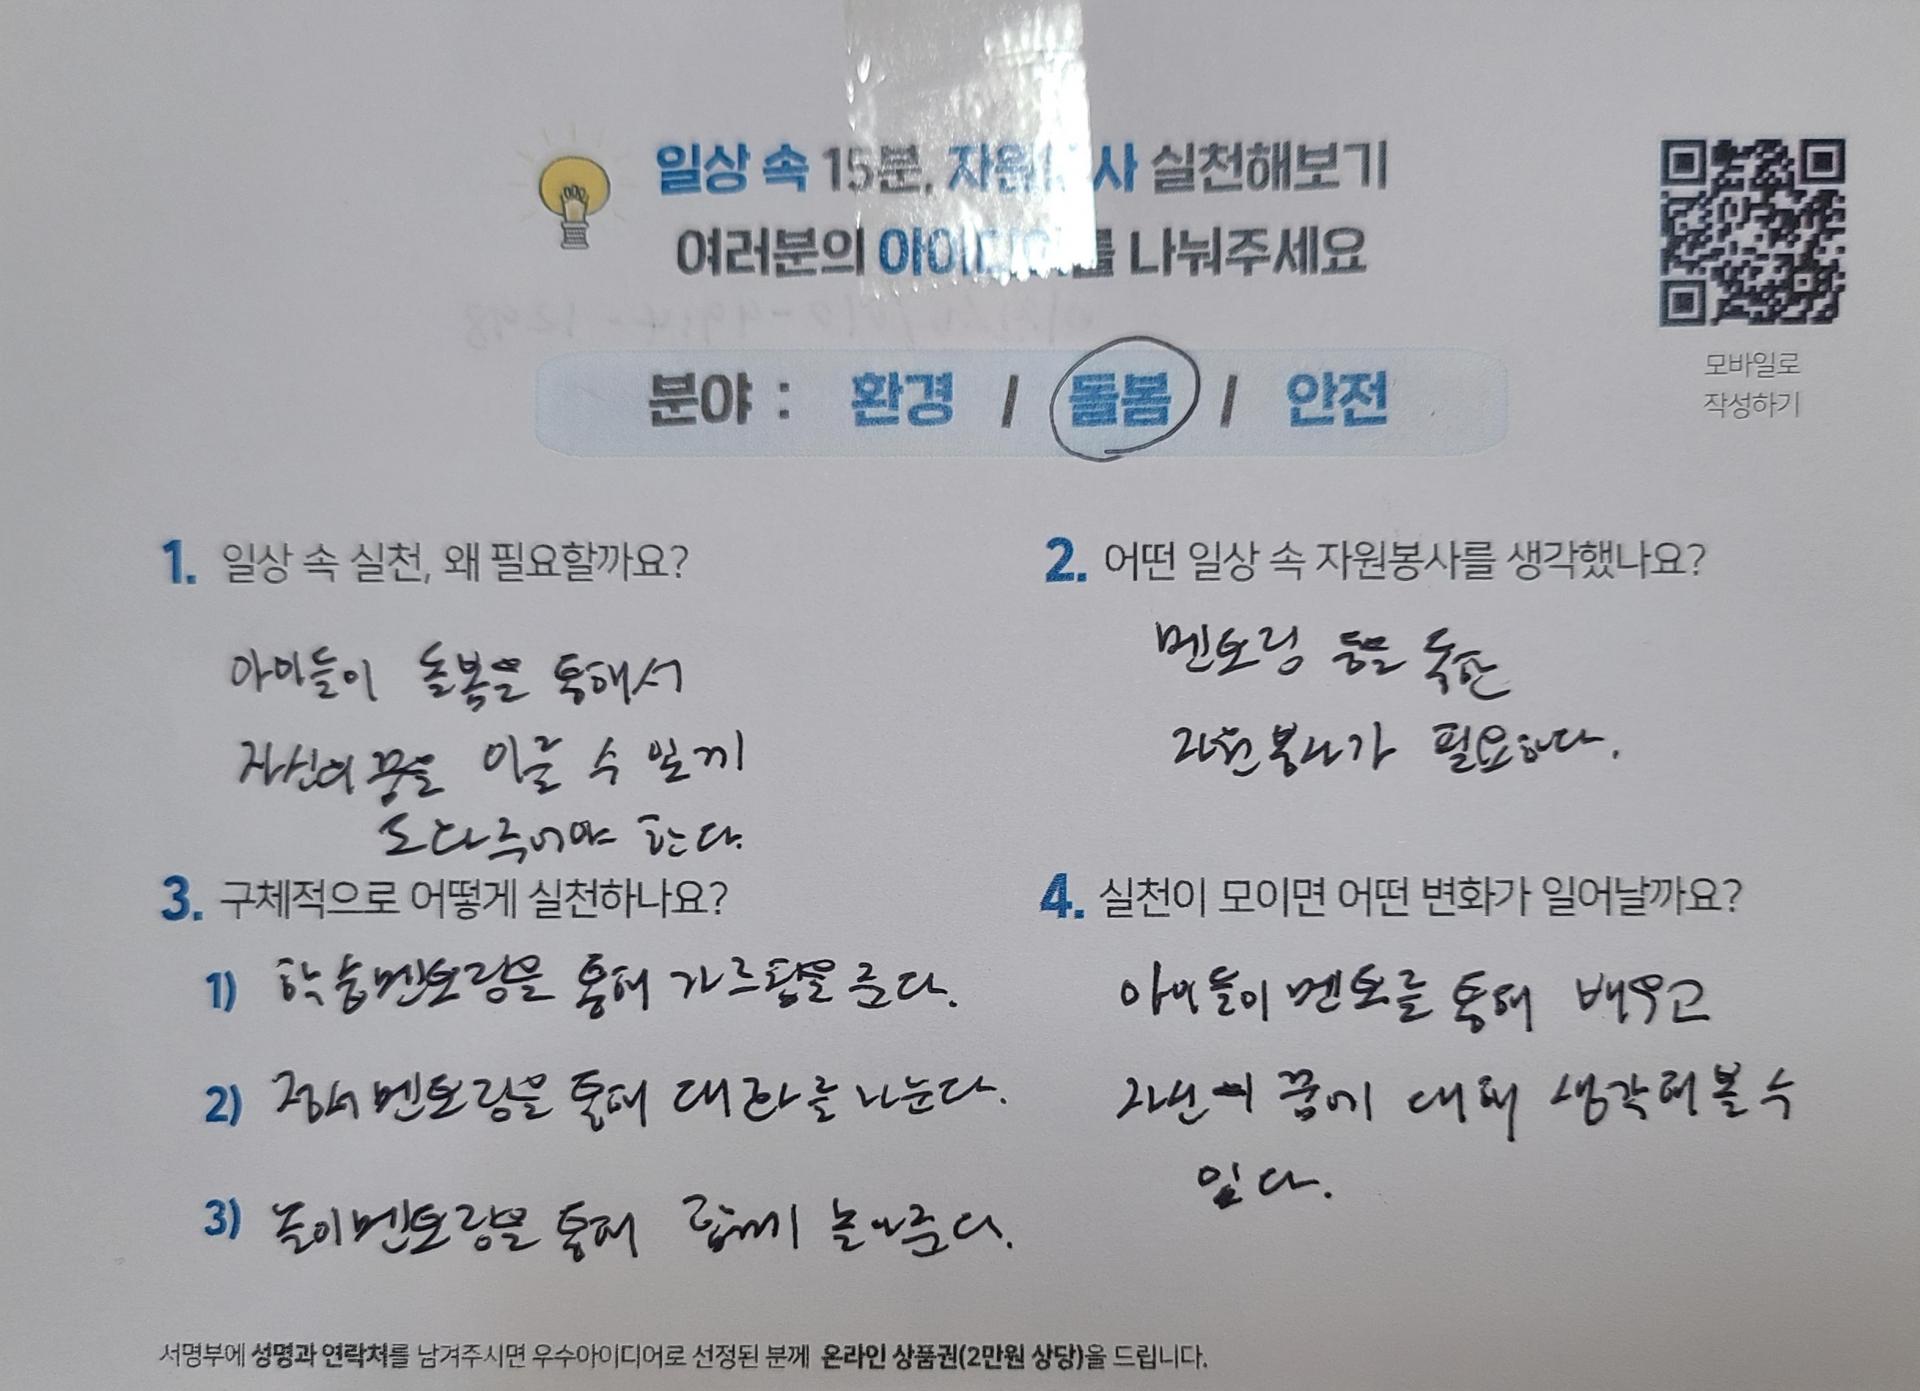 일상 속 15분, 자원봉사 실천해보기
여러분의 아이디어를 나눠주세요
모바일로
작성하기
분야 : 환경 / 돌봄 / 안전
1. 일상 속 실천, 왜 필요할까요?
아이들이 돌봄을 통해서
자신의 꿈을 이룰 수 있게
도와주어야 한다.
2. 어떤 일상 속 자원봉사를 생각했나요?
멘토링 등을 통한
자원봉사가 필요하다.
3. 구체적으로 어떻게 실천하나요?
1) 학습멘토링을 통해 가르침을 준다.
2) 정서멘토링을 통해 대화를 나눈다.
3) 놀이멘토링을 통해 함께 놀아준다.
4. 실천이 모이면 어떤 변화가 일어날까요?
아이들이 멘토를 통해 배우고
자신의 꿈에 대해 생각해볼 수
있다.
서명부에 성명과 연락처를 남겨주시면 우수아이디어로 선정된 분께 온라인 상품권(2만원 상당)을 드립니다.